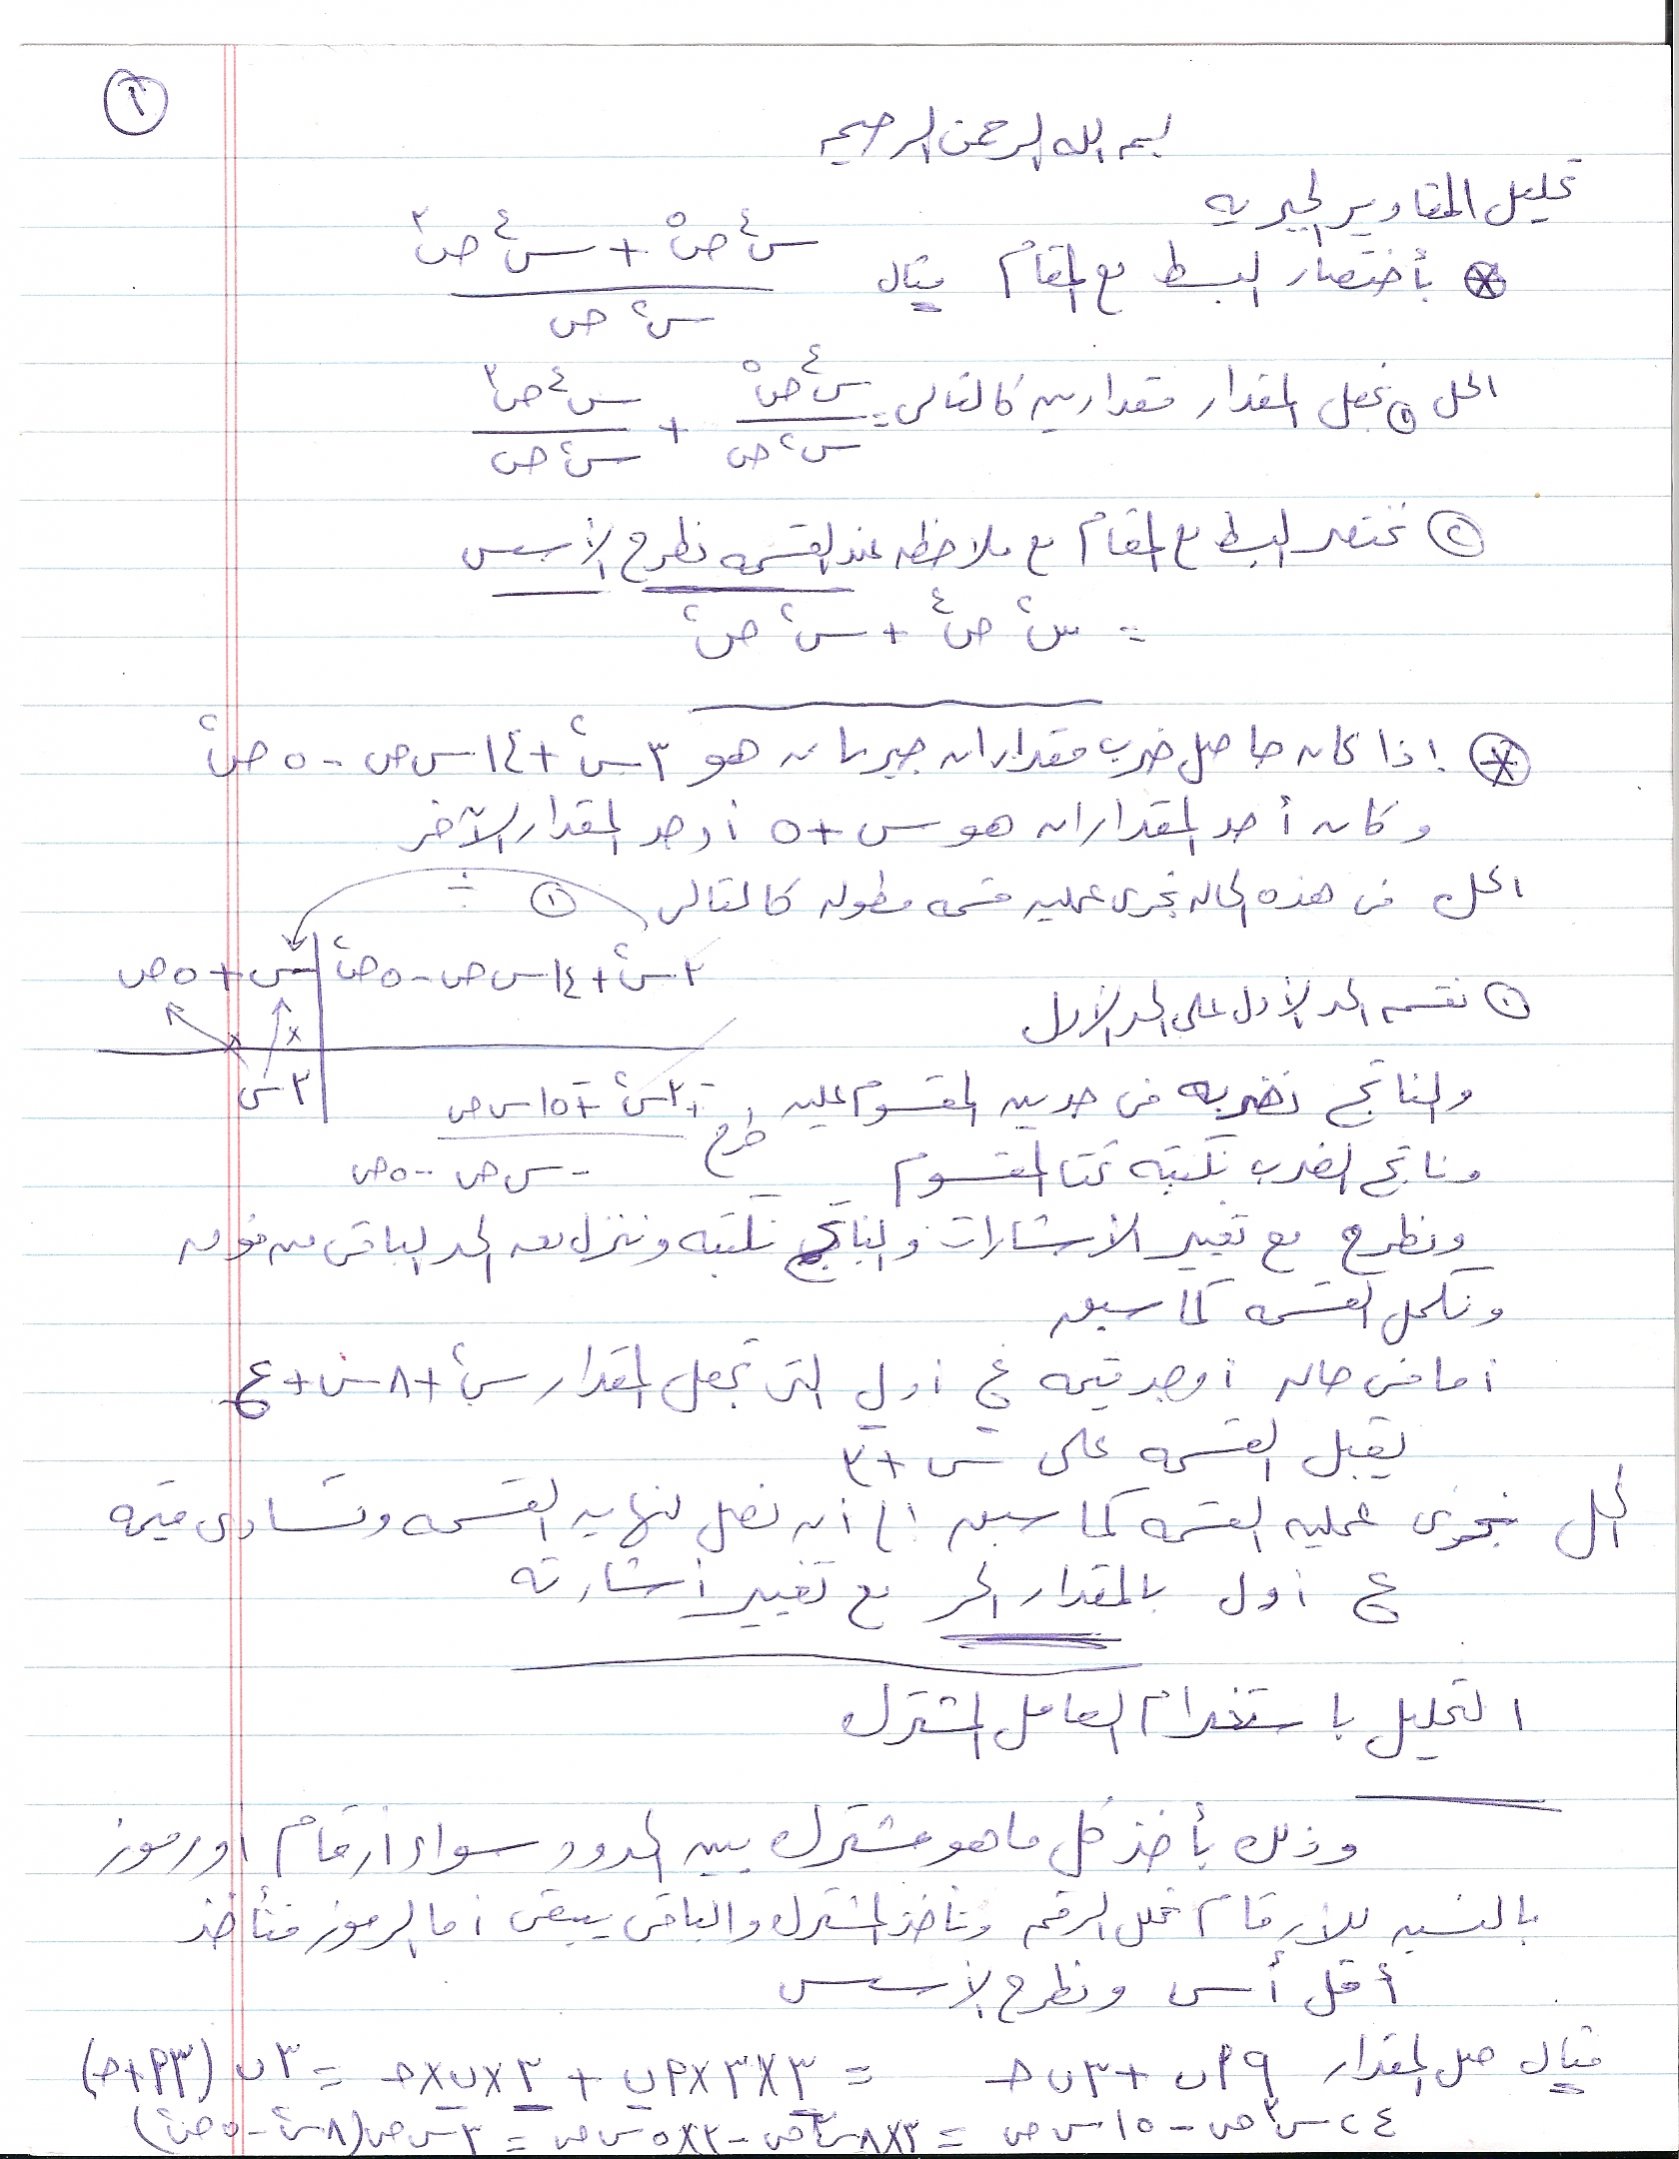 ١
بسم الله الرحمن الرحيم
تحليل المقادير الجبريه
بأختصار البسط مع المقام مثال س٤ ص٥ + س٤ ص٣ / س٢ ص
الحل ① نجعل المقدار مقدارين كالتالى = س٤ ص٥ / س٢ ص + س٤ ص٣ / س٢ ص
② نختصر البسط مع المقام مع ملاحظه عند القسمه نطرح الأسس
= س٢ ص٤ + س٢ ص٢
اذا كان حاصل ضرب مقداران جبريان هو ٣س٢ + ١٤س ص - ٥ص٢
وكان أحد المقداران هو س + ٥ أوجد المقدار الآخر
الحل فى هذه الحاله نجرى عمليه قسمه مطوله كالتالى ① ÷
٣س٢ + ١٤س ص - ٥ص٢ | س + ٥ص
① نقسم الحد الأول على الحد الأول
٣س
والناتج نضربه فى حدين المقسوم عليه ٣س٢ + ١٥س ص
وناتج الضرب نكتبه تحت المقسوم طرح - س ص - ٥ص
ونطرح مع تغيير الأشارات والناتج نكتبه وننزل معه الحد الباقى من فوق
ونكمل القسمه كما سبق
أما فى حاله أوجد قيمه ع أو ل التى تجعل المقدار س٢ + ٨س + ع
يقبل القسمه على س + ٣
الحل نجرى عمليه القسمه كما سبق الى أن نصل لنهايه القسمه وتساوى قيمه
ع أو ل بالمقدار الحر مع تغيير أشارته
التحليل باستخدام العامل المشترك
وذلك بأخذ كل ما هو مشترك بين الحدود سواء أرقام او رموز
بالنسبه للأرقام نحلل الرقم ونأخذ المشترك والباقى يبقى أما الرموز فنأخذ
أقل أس ونطرح الأسس
مثال حلل المقدار ٩أب + ٣ب جـ = ٣×٣×أب + ٣×ب×جـ = ٣ب (٣أ+جـ)
٢٤س٣ص - ١٥س ص = ٣×٨س٣ص - ٣×٥س ص = ٣س ص(٨س٢ - ٥ص٢)